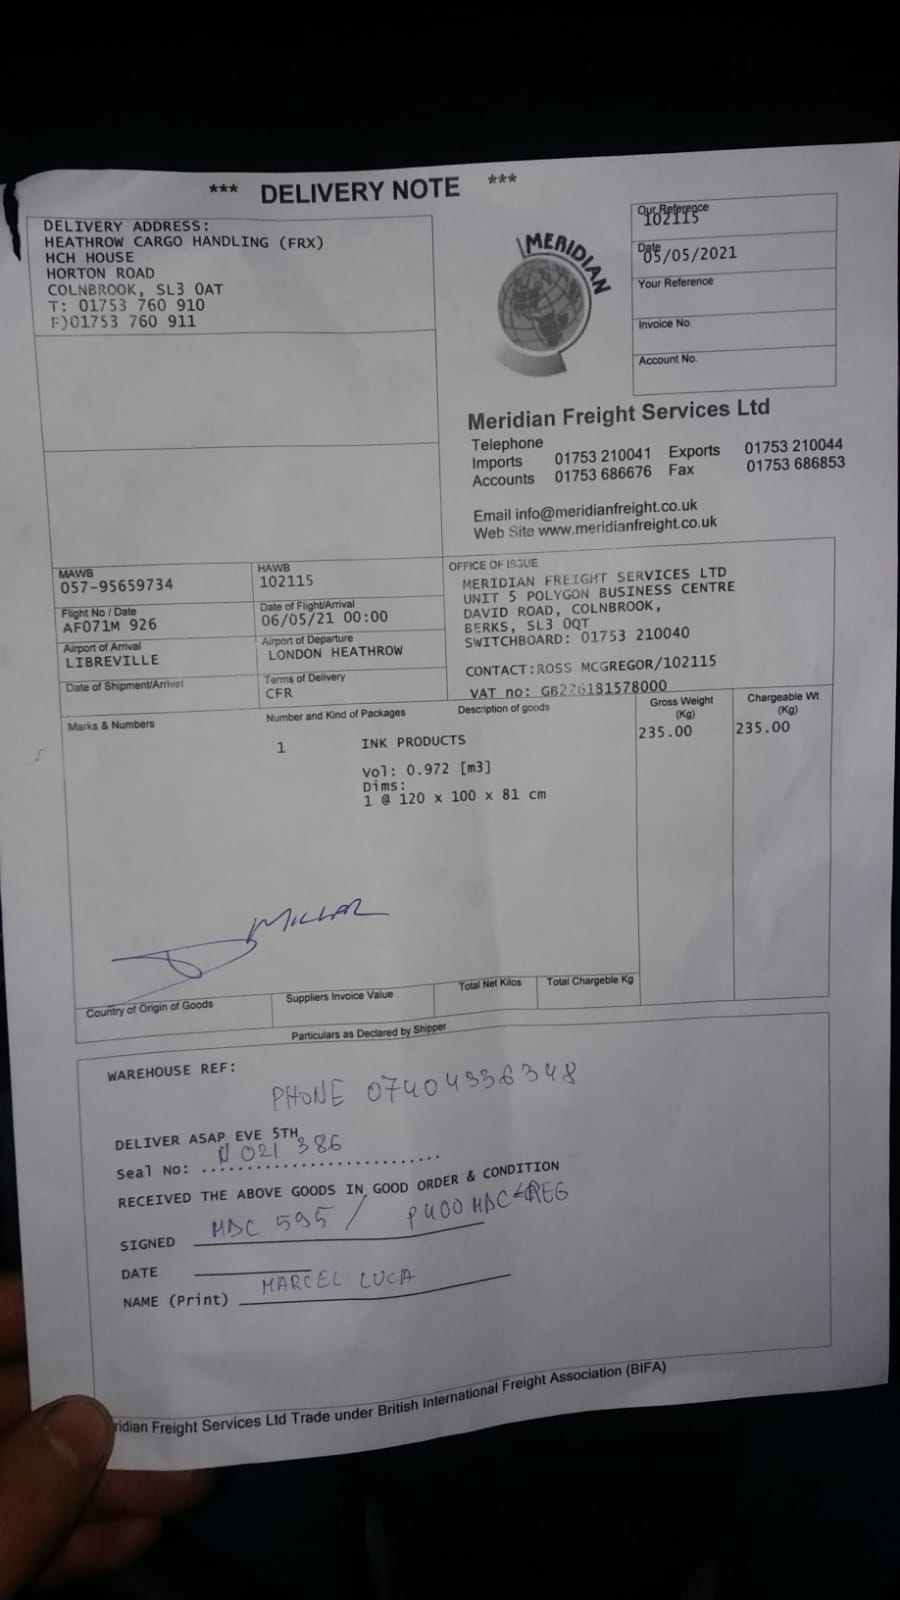 *** DELIVERY NOTE ***
DELIVERY ADDRESS:
HEATHROW CARGO HANDLING (FRX)
HCH HOUSE
HORTON ROAD
COLNBROOK, SL3 0AT
T: 01753 760 910
F)01753 760 911
MERIDIAN
Our Reference
102115
Date
05/05/2021
Your Reference
Invoice No.
Account No.
Meridian Freight Services Ltd
Telephone
Imports 01753 210041 Exports 01753 210044
Accounts 01753 686676 Fax 01753 686853
Email info@meridianfreight.co.uk
Web Site www.meridianfreight.co.uk
MAWB
057-95659734
HAWB
102115
Flight No / Date
AF071M 926
Date of Flight/Arrival
06/05/21 00:00
Airport of Arrival
LIBREVILLE
Airport of Departure
LONDON HEATHROW
Date of Shipment/Arrival
Terms of Delivery
CFR
OFFICE OF ISSUE
MERIDIAN FREIGHT SERVICES LTD
UNIT 5 POLYGON BUSINESS CENTRE
DAVID ROAD, COLNBROOK,
BERKS, SL3 0QT
SWITCHBOARD: 01753 210040
CONTACT:ROSS MCGREGOR/102115
VAT no: GB226181578000
Marks & Numbers
Number and Kind of Packages
Description of goods
Gross Weight
(Kg)
Chargeable Wt
(Kg)
1 INK PRODUCTS 235.00 235.00
Vol: 0.972 [m3]
Dims:
1 @ 120 x 100 x 81 cm
MILLAR
Country of Origin of Goods
Suppliers Invoice Value
Total Net Kilos
Total Chargeble Kg
Particulars as Declared by Shipper
WAREHOUSE REF:
PHONE 07404336348
DELIVER ASAP EVE 5TH
Seal No: N 021 386
RECEIVED THE ABOVE GOODS IN GOOD ORDER & CONDITION
SIGNED MDC 595 / P400 MDC REG
DATE
NAME (Print) MARCEL LUCA
ridian Freight Services Ltd Trade under British International Freight Association (BIFA)